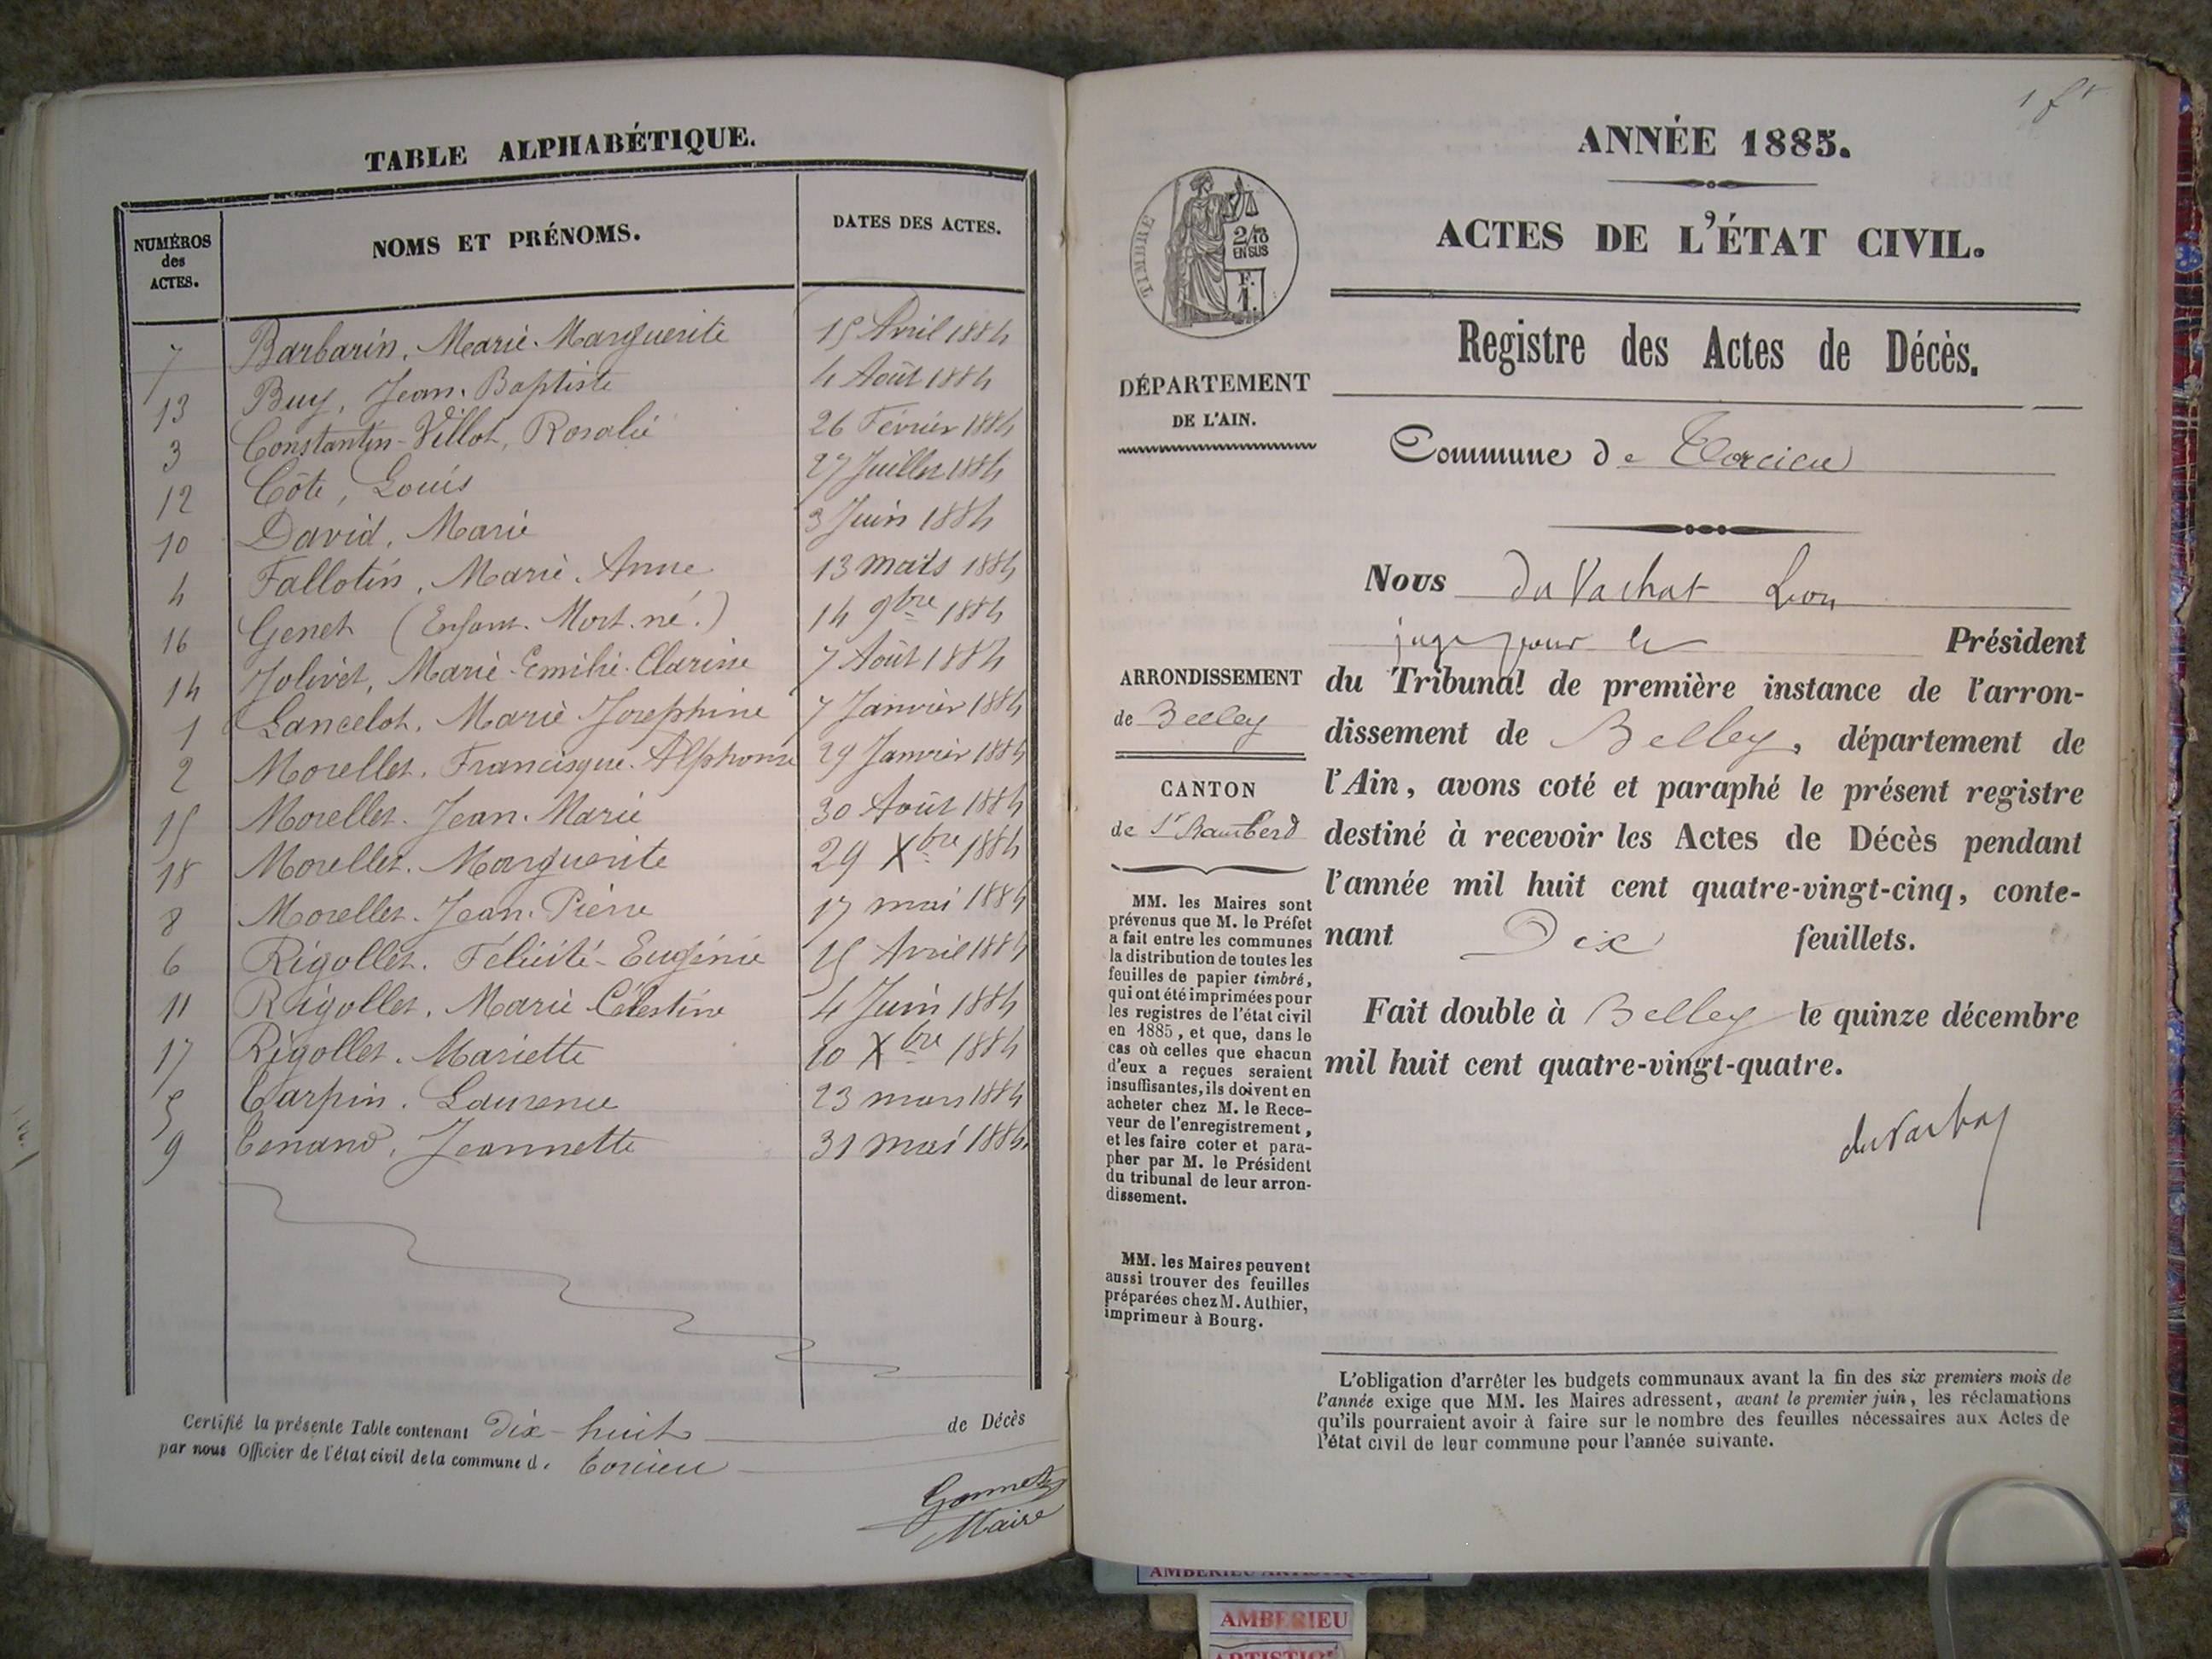 TABLE ALPHABÉTIQUE.
NUMÉROS des ACTES. NOMS ET PRÉNOMS. DATES DES ACTES.
7 Barbarin, Marie-Marguerite 15 Avril 1884
13 Buy, Jean-Baptiste 4 Août 1884
3 Constantin-Villot, Rosalie 26 Février 1884
12 Côte, Louis 27 Juillet 1884
10 David, Marie 3 Juin 1884
4 Fallotin, Marie-Anne 13 mars 1884
16 Genet (Enfant Mort-né.) 14 9bre 1884
14 Jolivet, Marie-Emilie-Clarine 7 Août 1884
1 Lancelot, Marie Josephine 7 Janvier 1884
2 Morellet, Francisque-Alphonse 29 Janvier 1884
15 Morellet, Jean-Marie 30 Août 1884
18 Morellet, Marguerite 29 Xbre 1884
8 Morellet, Jean-Pierre 17 mai 1884
6 Rigollet, Félicité-Eugénie 15 Avril 1884
11 Rigollet, Marie Célestine 4 Juin 1884
17 Rigollet, Mariette 10 Xbre 1884
5 Tarpin, Laurence 23 mars 1884
9 Tenand, Jeannette 31 mai 1884
Certifié la présente Table contenant Dix-huit de Décès
par nous Officier de l'état civil de la commune de Torcieu
Gonnet
Maire
1 ft
ANNÉE 1885.
ACTES DE L'ÉTAT CIVIL.
Registre des Actes de Décès.
TIMBRE
2/10
EN SUS
F.
1.
DÉPARTEMENT
DE L'AIN.
Commune de Torcieu
ARRONDISSEMENT
de Belley
CANTON
de St Rambert
MM. les Maires sont
prévenus que M. le Préfet
a fait entre les communes
la distribution de toutes les
feuilles de papier timbré,
qui ont été imprimées pour
les registres de l'état civil
en 1885, et que, dans le
cas où celles que chacun
d'eux a reçues seraient
insuffisantes, ils doivent en
acheter chez M. le Rece-
veur de l'enregistrement,
et les faire coter et para-
pher par M. le Président
du tribunal de leur arron-
dissement.
MM. les Maires peuvent
aussi trouver des feuilles
préparées chez M. Authier,
imprimeur à Bourg.
Nous du Vachat Léon
juge pour le Président
du Tribunal de première instance de l'arron-
dissement de Belley, département de
l'Ain, avons coté et paraphé le présent registre
destiné à recevoir les Actes de Décès pendant
l'année mil huit cent quatre-vingt-cinq, conte-
nant Dix feuillets.
Fait double à Belley le quinze décembre
mil huit cent quatre-vingt-quatre.
du Vachat
L'obligation d'arrêter les budgets communaux avant la fin des six premiers mois de
l'année exige que MM. les Maires adressent, avant le premier juin, les réclamations
qu'ils pourraient avoir à faire sur le nombre des feuilles nécessaires aux Actes de
l'état civil de leur commune pour l'année suivante.
AMBERIEU
ARTISTIQUE